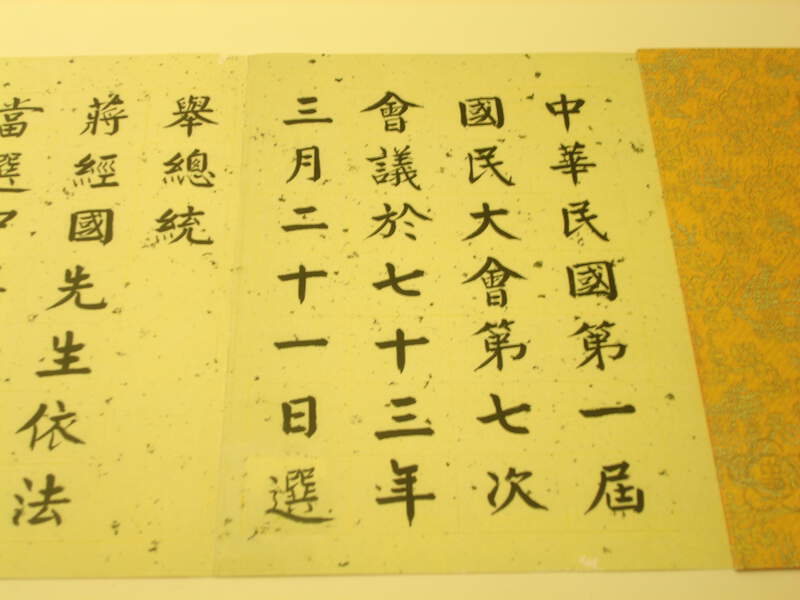 中華民國第一屆
國民大會第七次
會議於七十三年
三月二十一日選
舉總統
蔣經國先生依法
當選中